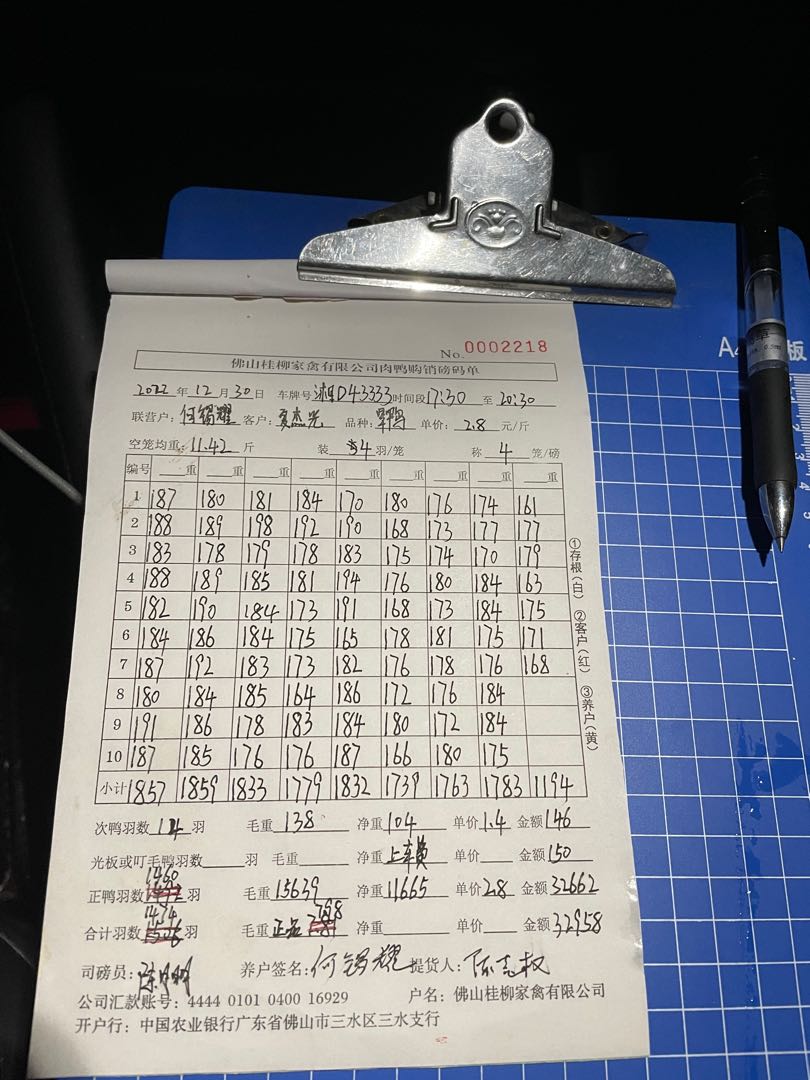 A4
板
No. 0002218
佛山桂柳家禽有限公司肉鸭购销磅码单
2022 年 12 月 30 日 车牌号 湘D43333 时间段 17:30 至 20:30
联营户: 何锡耀 客户: 单价: 2.8 元/斤 品种:
空笼均重: 11.42 斤 装 4 羽/笼 称 4 笼/磅
编号 重 重 重 重 重 重 重 重 重
1 187 180 181 184 170 180 176 174 161
2 188 189 198 192 190 168 173 177 177
3 183 178 179 178 183 175 174 170 179
4 188 189 185 181 194 176 180 184 163
5 182 190 184 173 191 168 173 184 175
6 184 186 184 175 165 178 181 175 171
7 187 192 183 173 182 176 178 176 168
8 180 184 185 164 186 172 176 184
9 191 186 178 183 184 180 172 184
10 187 185 176 176 187 166 180 175
小计 1857 1859 1833 1779 1832 1739 1763 1783 1194
①存根(白) ②客户(红) ③养户(黄)
次鸭羽数 14 羽 毛重 138 净重 104 单价 1.4 金额 146
光板或叮毛鸭羽数 羽 毛重 净重 上车费 单价 金额 150
1460
正鸭羽数 羽 毛重 15639 净重 11665 单价 2.8 金额 32662
1474
合计羽数 羽 毛重 正品 7.98 净重 单价 金额 32958
司磅员: 养户签名: 何锡耀 提货人: 陈志权
公司汇款账号: 4444 0101 0400 16929 户名: 佛山桂柳家禽有限公司
开户行: 中国农业银行广东省佛山市三水区三水支行